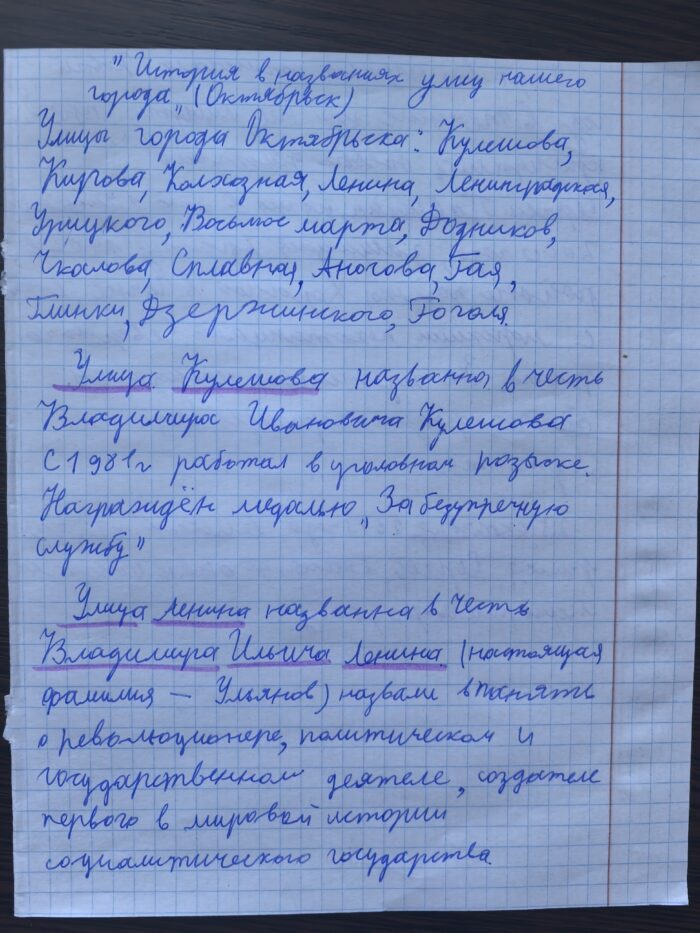 "История в названиях улиц нашего
города" (Октябрьск)
Улицы города Октябрьска: Кулешова,
Кирова, Колхозная, Ленина, Ленинградская,
Урицкого, Восьмое марта, Родников,
Чкалова, Сплавная, Аносова, Гая,
Глинки, Дзержинского, Гоголя.
Улица Кулешова названна в честь
Владимира Ивановича Кулешова
С 1981г работал в уголовном розыске.
Награждён медалью „За безупречную
службу"
Улица Ленина названна в честь
Владимира Ильича Ленина. (настоящая
фамилия — Ульянов) назвали в память
о революционере, политическом и
государственном деятеле, создателе
первого в мировой истории
социалитического государства.